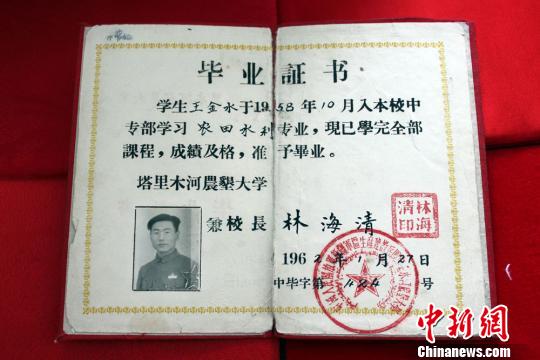 毕业証书
学生王金水于1958年10月入本校中
专部学习农田水利专业，現已學完全部
課程，成績及格，准予畢业。
塔里木河農墾大学
兼校長 林海清
林海清印
1962年1月27日
中毕字第484号
中新网
Chinanews.com